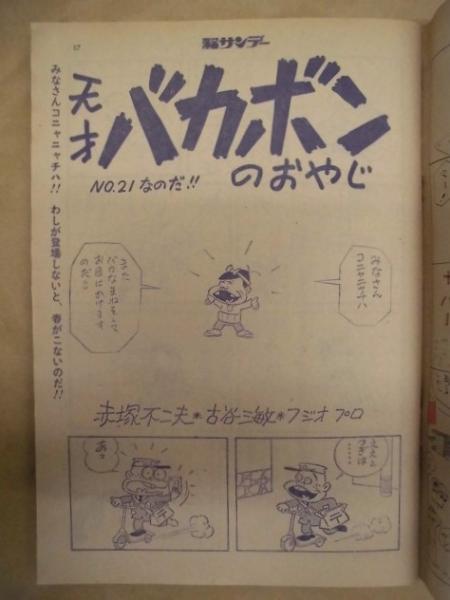 17
週刊サンデー
天才
バカボン
のおやじ
NO.21 なのだ!!
みなさんコニャニャチハ!! わしが登場しないと、春がこないのだ!!
みなさん
コニャニャチハ
また
バカなまねをして
お目にかけます
のだ
赤塚不二夫*古谷三敏*フジオプロ
ええと
つぎは
……
あっ